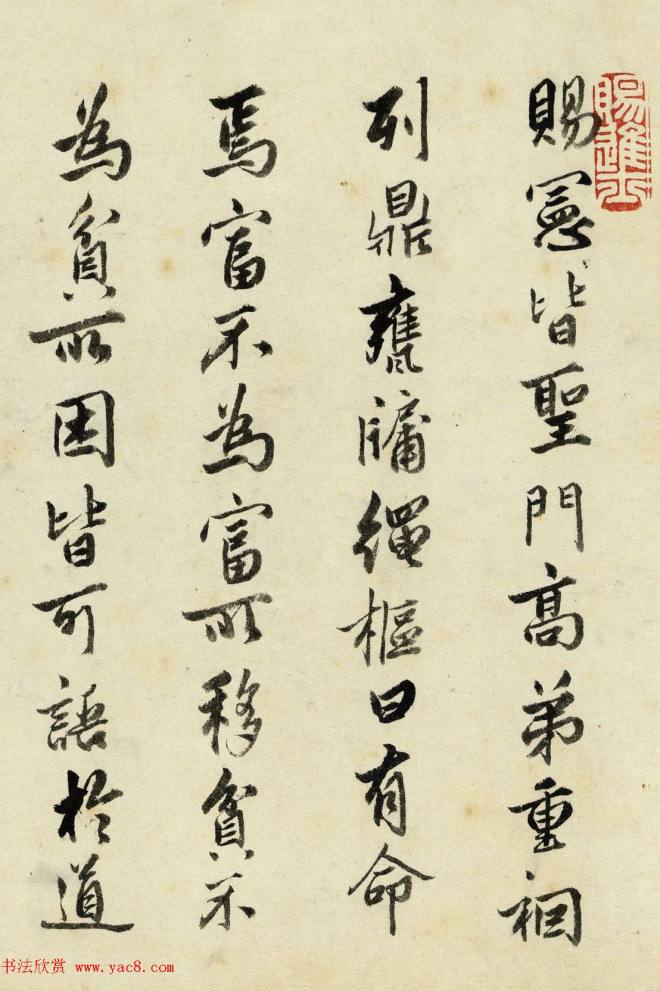 賜憲皆聖門高弟重裀
列鼎甕牖繩樞曰有命
焉富不為富所移貧不
為貧所困皆可語於道
书法欣赏 www.yac8.com